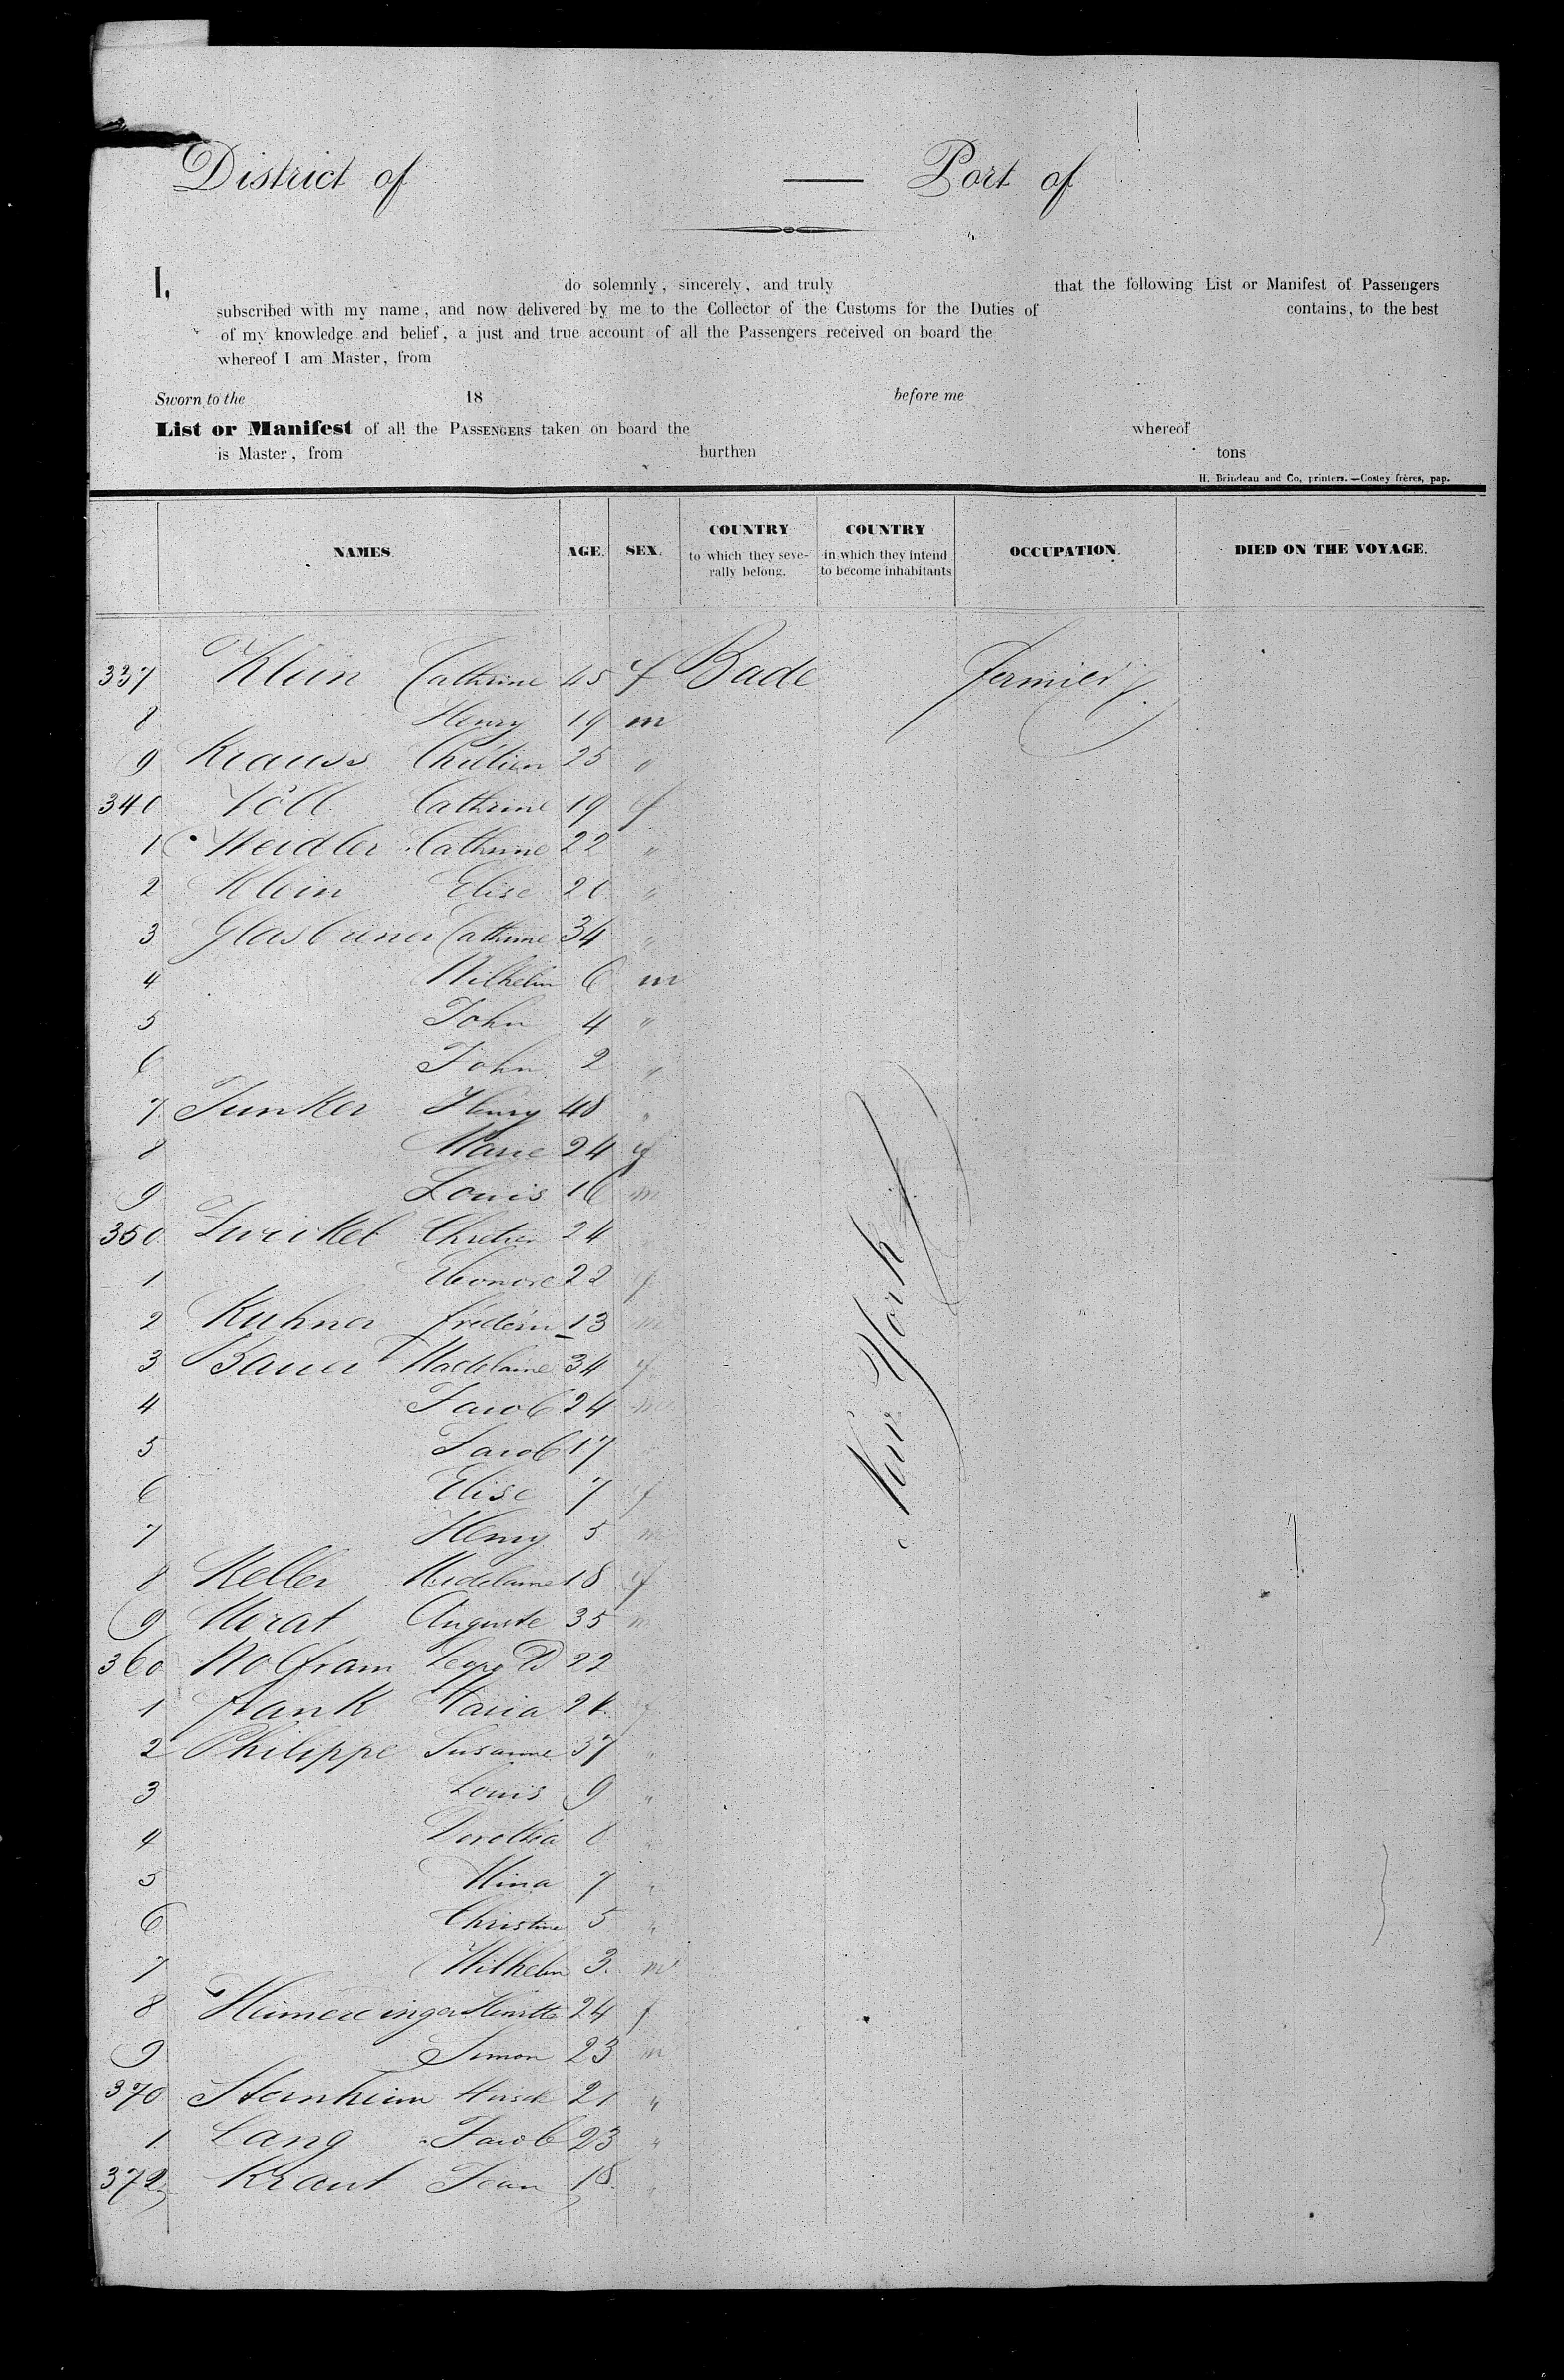 District of — Port of
I, do solemnly, sincerely, and truly that the following List or Manifest of Passengers
subscribed with my name, and now delivered by me to the Collector of the Customs for the Duties of contains, to the best
of my knowledge and belief, a just and true account of all the Passengers received on board the
whereof I am Master, from
Sworn to the 18 before me
List or Manifest of all the PASSENGERS taken on board the whereof
is Master, from burthen tons
H. Brindeau and Co, printers.—Costey frères, pap.
NAMES. AGE. SEX. COUNTRY to which they severally belong. COUNTRY in which they intend to become inhabitants OCCUPATION. DIED ON THE VOYAGE.
337 Klein Cathrine 45 f Bade Fermier
8 Henry 19 m
9 Krauss Chrétien 25 "
340 Völl Cathrine 19 f
1 Weidler Cathrine 22 "
2 Klein Elise 20 "
3 Glasbrener Cathrine 34 "
4 Wilhelm 6 m
5 John 4 "
6 John 2 "
7 Junker Henry 48 "
8 Marie 24 f
9 Louis 16 m
350 Zwickel Chretien 24
1 Eleonore 22 f
2 Kuhner 13 m
3 Bauer Madelaine 34 f
4 Jacob 24 m
5 Jacob 17
6 Elise 7 f
7 Henry 5 m
8 Keller Madelaine 18 f
9 Auguste 35 m
360 Wolfram Leopold 22
1 Frank Maria 2 f
2 Philippe Susanne 37 "
3 Louis 9 "
4 Dorothea "
5 Mina 7 "
6 Christine 5 "
7 Wilhelm 3 m
8 Heimerdinger Henrtte 24 f
9 Simon 23 m
370 Sternheim Hirsch 21 "
1 Lang Jacob 23 "
372 Kraut Jean 18
New York